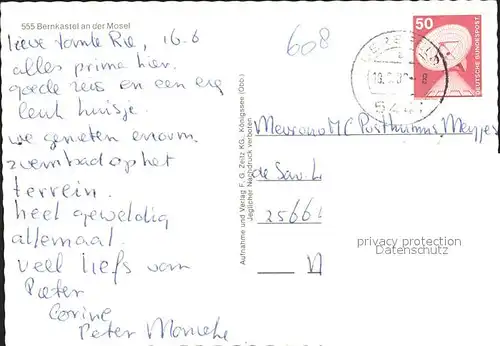 555 Bernkastel an der Mosel
lieve tante Rie, 16.6
alles prima hier.
goede reis en een erg
leuk huisje.
we genieten enorm.
zwembad op het
terrein.
heel geweldig
allemaal.
veel liefs van
Pieter
Corine
Peter
608
50
DEUTSCHE BUNDESPOST
Aufnahme und Verlag F. G. Zeitz KG., Königssee (Obb.)
Jeglicher Nachdruck verboten
Mevrouw M C Posthumus Meyjes
de Sav. L
2566
privacy protection
Datenschutz